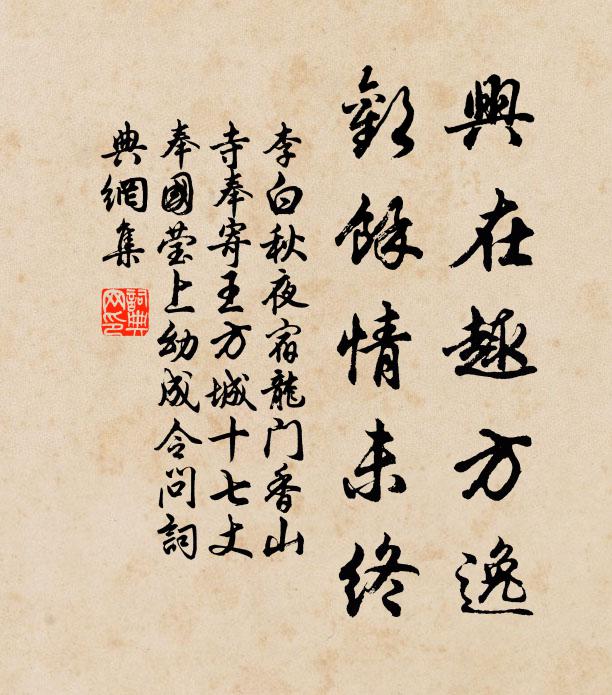 興在趣方逸
歡餘情未終
李白秋夜宿龍门香山
寺奉寄王方城十七丈
奉國莹上幼成令問詞
典網集
詞典
网印